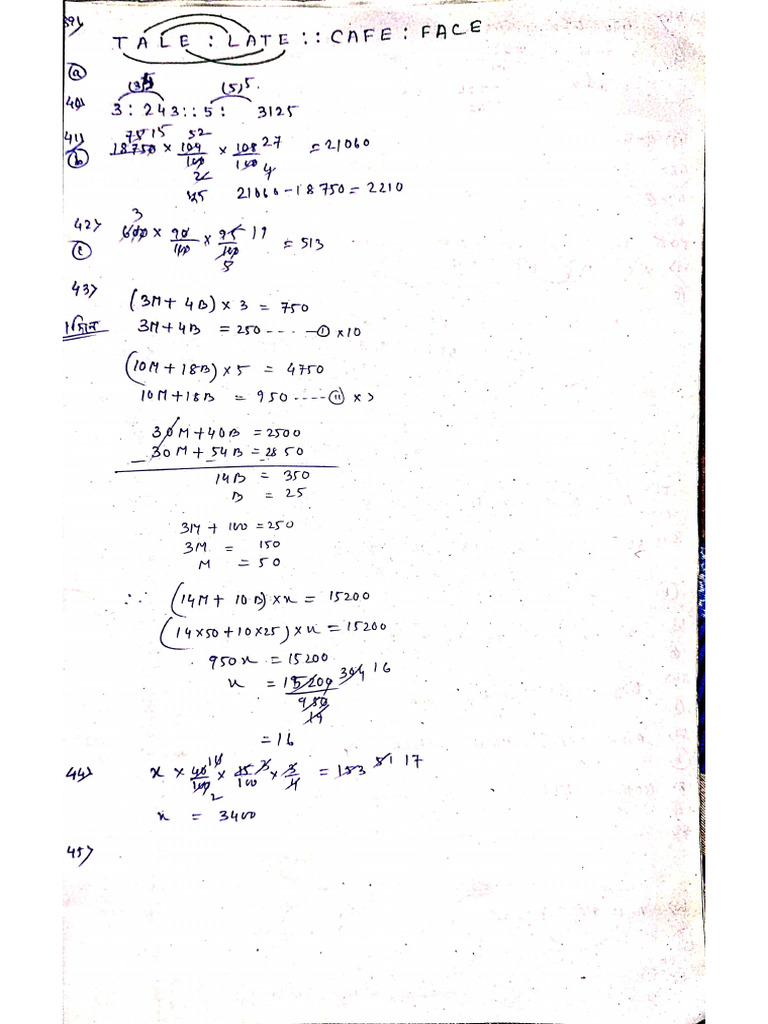 39)
TALE : LATE :: CAFE : FACE
(a)
(3)5 (5)5.
40) 3 : 243 :: 5 : 3125
41) 75 15 52
(b) 18750 × 104/100 × 108/100 27 = 21060
2 4
25 21060 - 18750 = 2210
42) 3
600 × 90/100 × 95/100 19 = 513
(c) 5
43) (3M + 4B) × 3 = 750
3M + 4B = 250 ---- (i) × 10
(10M + 18B) × 5 = 4750
10M + 18B = 950 ---- (ii) × 3
30M + 40B = 2500
- 30M + 54B = 2850
14B = 350
B = 25
3M + 100 = 250
3M = 150
M = 50
∴ (14M + 10B) × x = 15200
(14×50 + 10×25) × x = 15200
950x = 15200
x = 15200/950 304 16
19
= 16
44) x × 40/100 × 15/100 × 3/4 = 153 51 17
2
x = 3400
45)